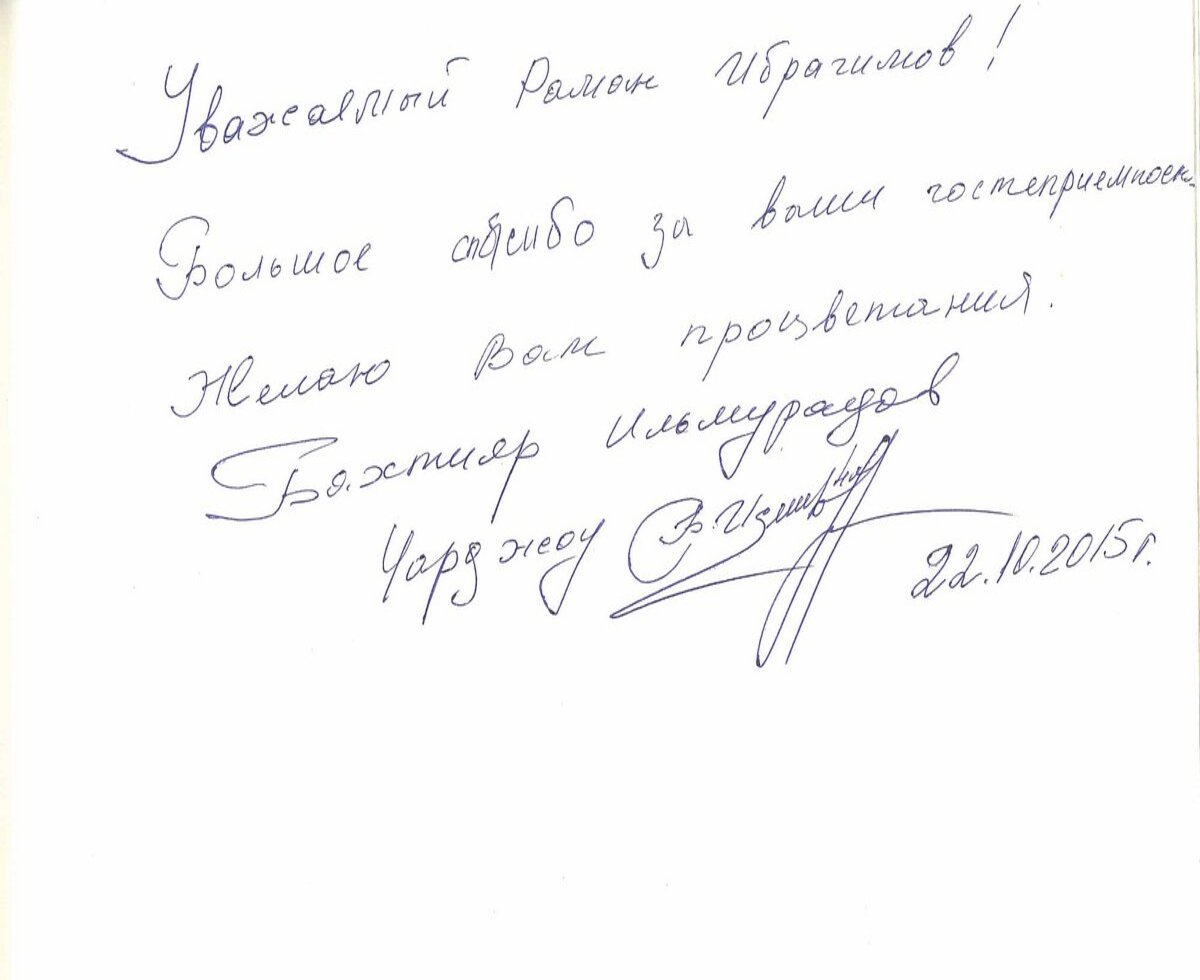 Уважаемый Раман Ибрагимов!
Большое спасибо за ваши
Желаю Вам процветания.
Бяхтияр Ильмурадов
Чарджоу
22.10.2015г.